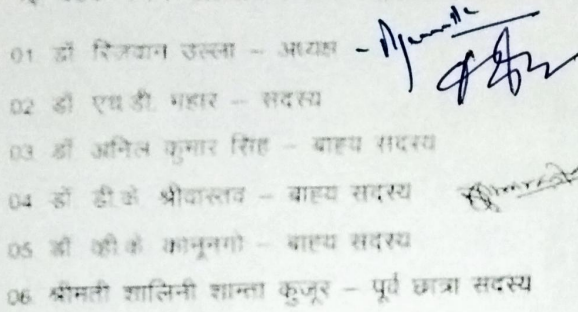 01 डॉ रिजवान उल्ला – अध्यक्ष –
02 डॉ एच.डी. महार – सदस्य
03 डॉ अनिल कुमार सिंह – बाह्य सदस्य
04 डॉ डी.के श्रीवास्तव – बाह्य सदस्य
05 डॉ व्ही.के कानूनगो – बाह्य सदस्य
06 श्रीमती शालिनी शान्ता कुजूर – पूर्व छात्रा सदस्य